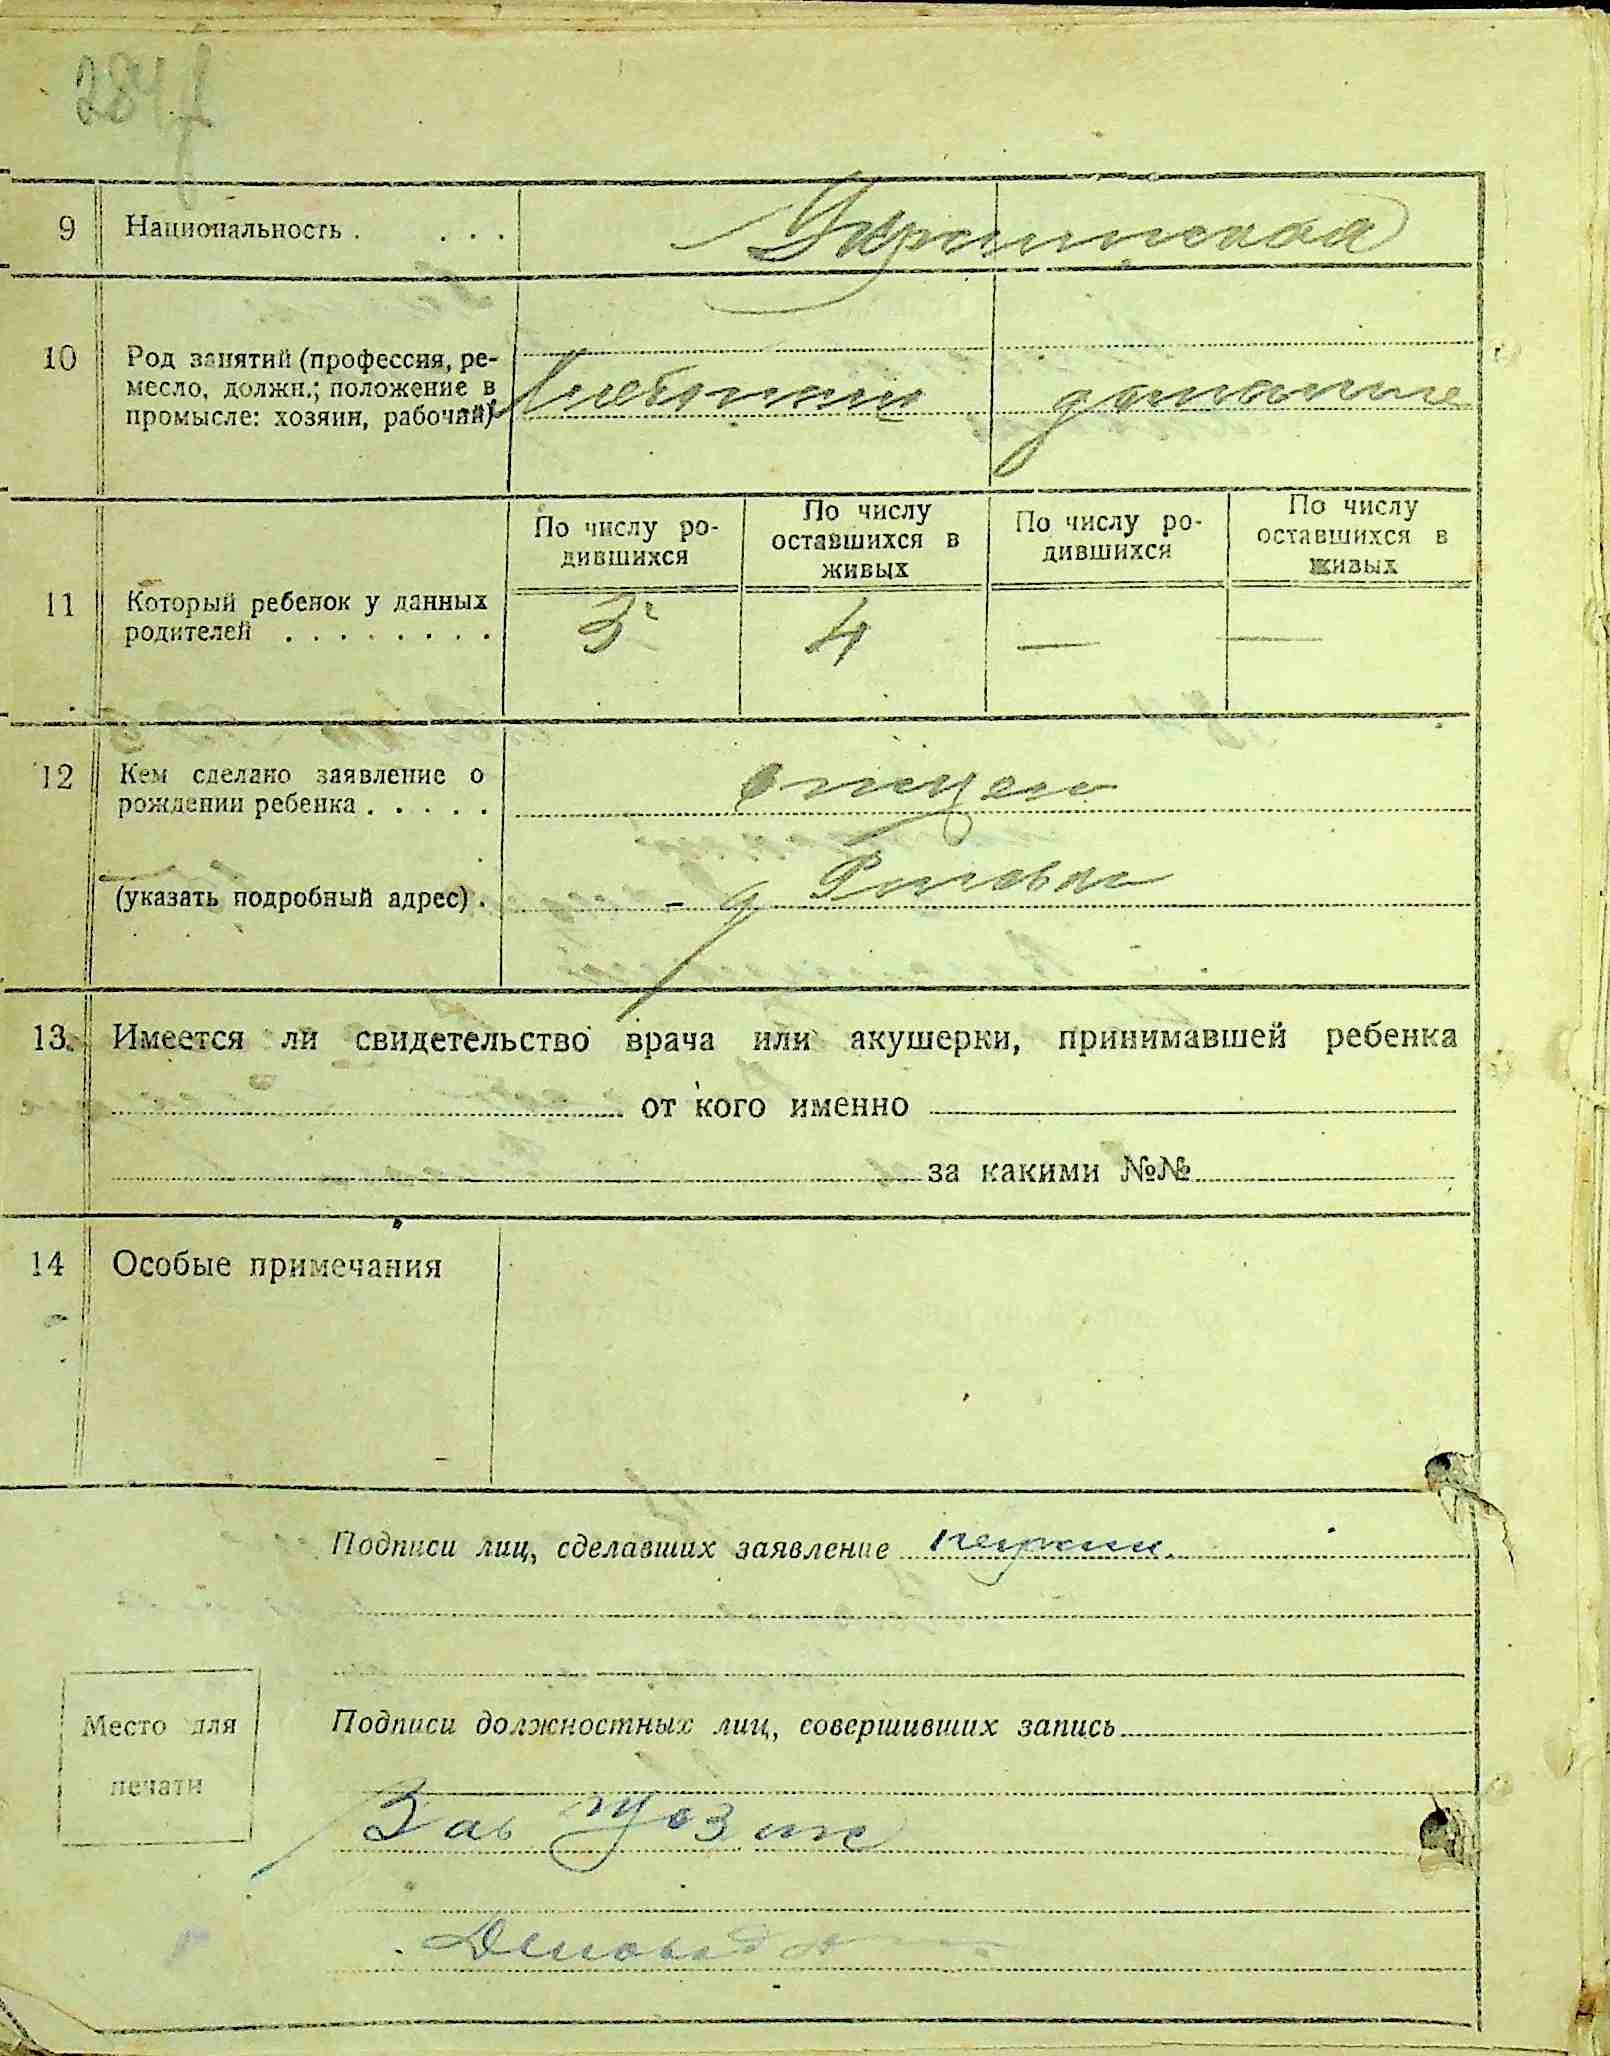 9 Национальность . . . . Украинская
10 Род занятий (профессия, ре-
месло, должн.; положение в
промысле: хозяин, рабочий)
Хлебопаш домашние
По числу ро-
дившихся
По числу
оставшихся в
живых
По числу ро-
дившихся
По числу
оставшихся в
живых
11 Который ребенок у данных
родителей . . . . . . . .
3 4 — —
12 Кем сделано заявление о
рождении ребенка . . . . .
отцем
(указать подробный адрес) .
13. Имеется ли свидетельство врача или акушерки, принимавшей ребенка
от кого именно
за какими №№
14 Особые примечания
Подписи лиц, сделавших заявление
Место для
печати
Подписи должностных лиц, совершивших запись
Зав
Деловод